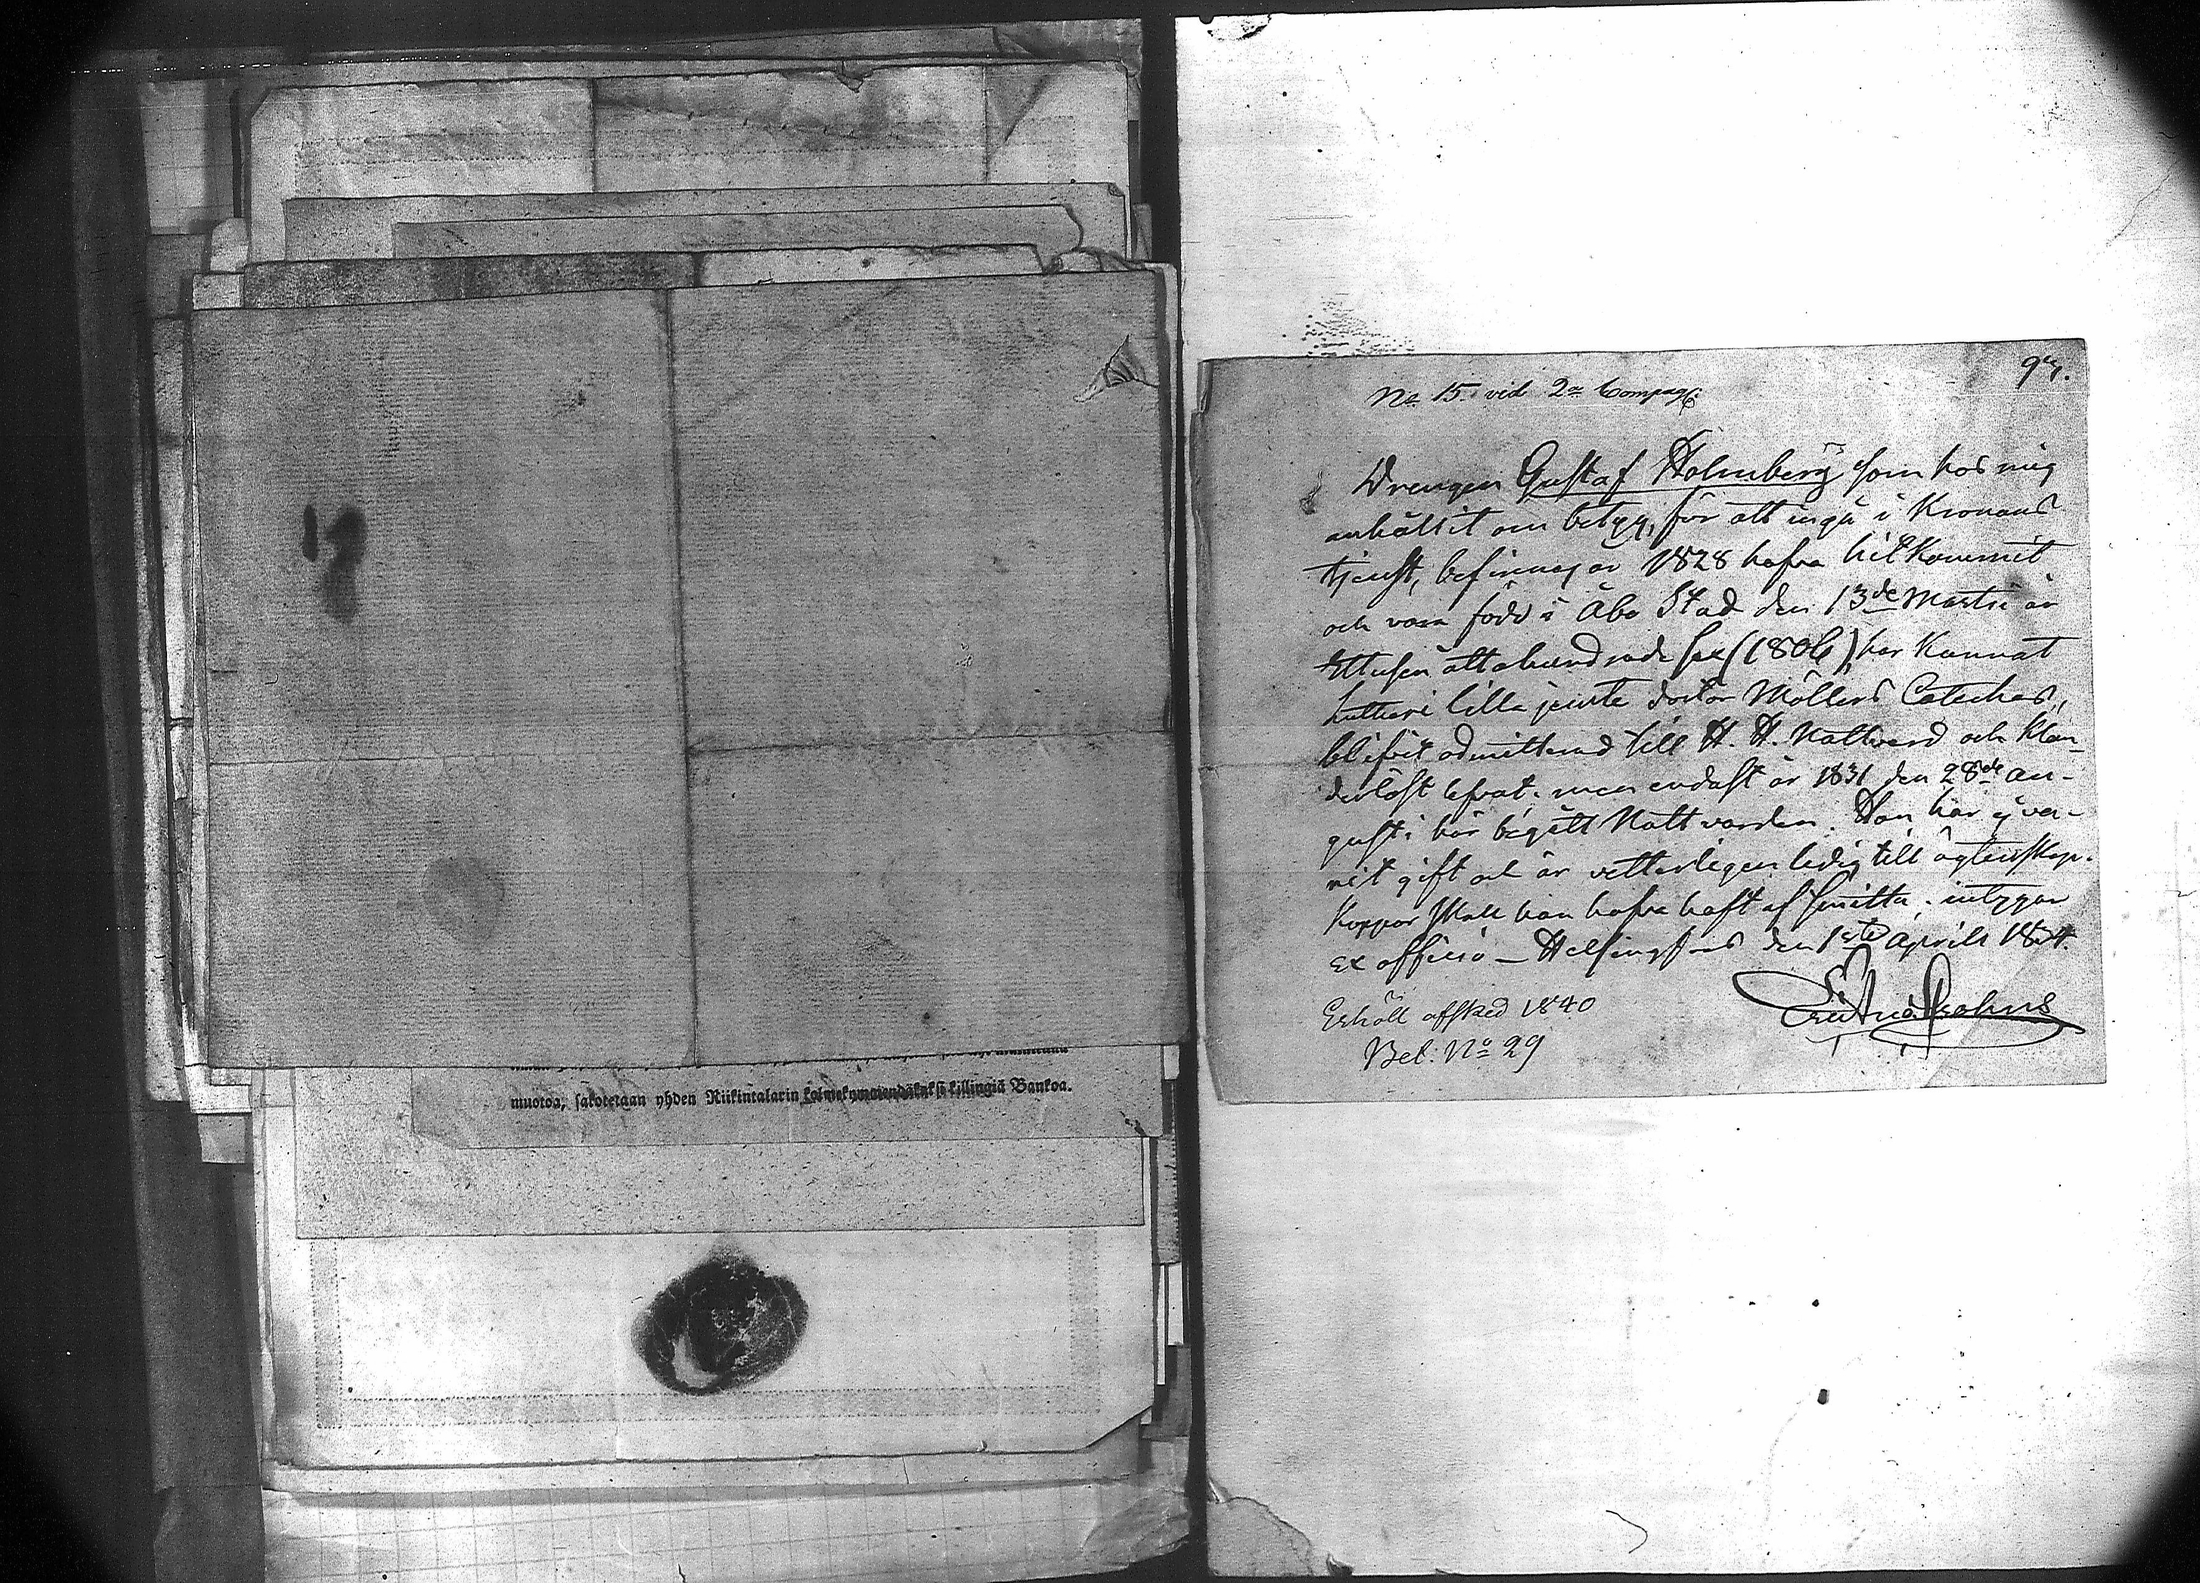 muotoa, sakotetaan yhden Riikintalarin kolmekymmendäkaksi killingiä Bankoa.
No 15 vid 2a Compag:
Drengen Gustaf Holmberg som hos mig
anhållit om betyg, för att ingå i Kronans
tjenst, befinnes år 1828 hafva hitkommit
och vara född i Åbo Stad den 13de Martii år
Ettusen åttahundrade sex (1806), har kunnat
Lutheri lilla jemte doctor Möllers Cateches,
blifvit admitterad till H. H. Nattvard och klan-
derlöst lefvat; men endast år 1831 den 28de Au-
gusti här begått Nattvarden. Han har ej va-
rit gift och är vetterligen ledig till ägtenskap.
Koppor skall han hafva haft af smitta; intygar
ex officio — Helsingfors den 1sta Aprils 1834.
Erhöll afsked 1840
Bel: No 29